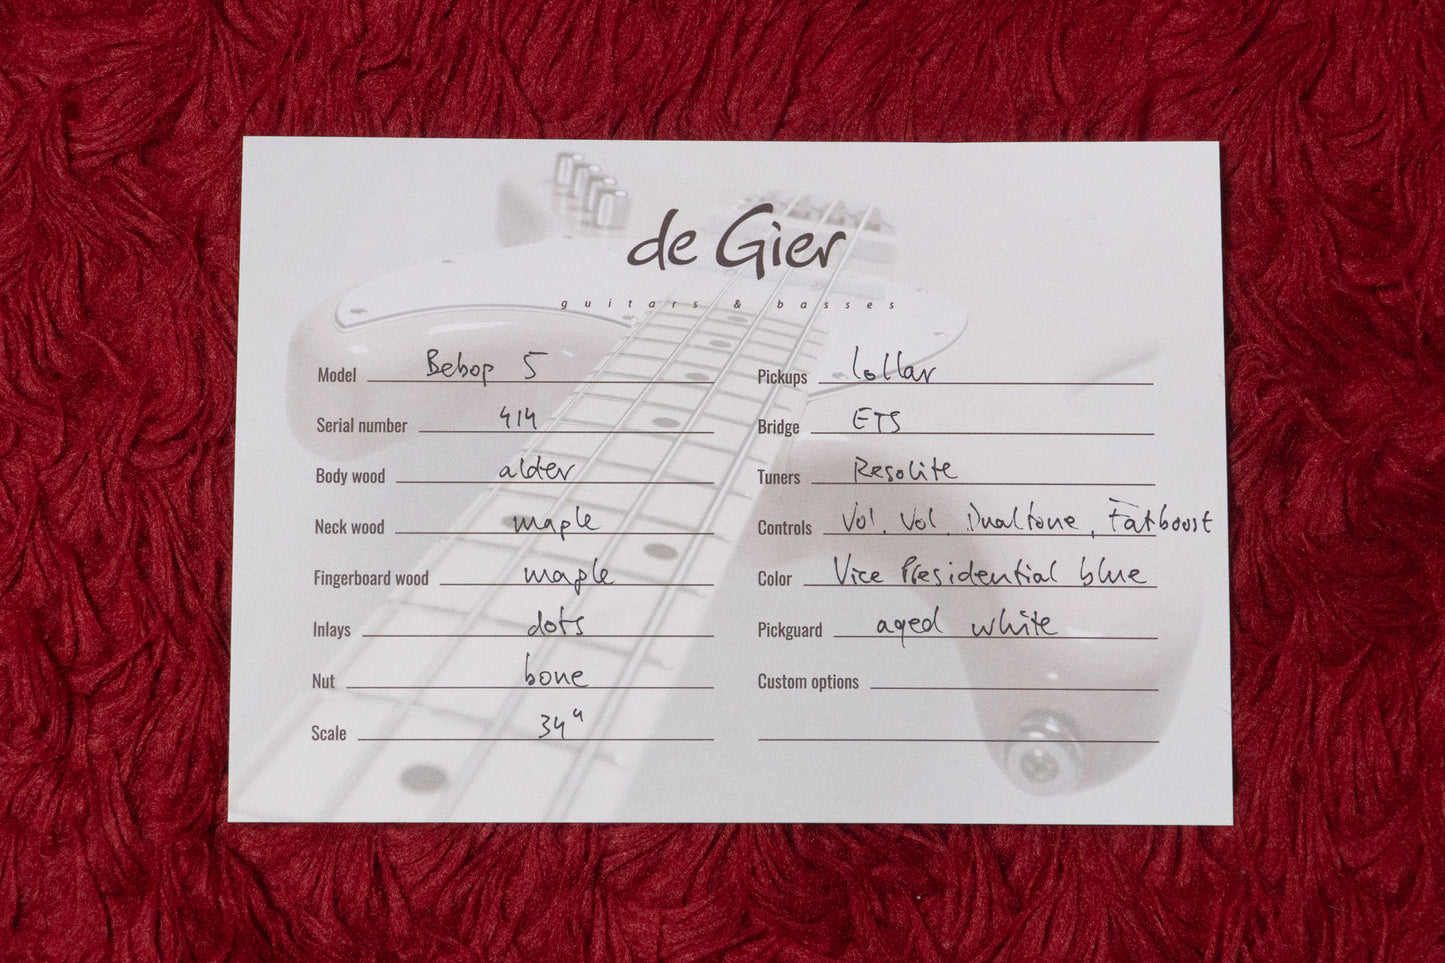 de Gier
guitars & basses
Model Bebop 5
Serial number 414
Body wood alder
Neck wood maple
Fingerboard wood maple
Inlays dots
Nut bone
Scale 34"
Pickups lollar
Bridge ETS
Tuners Resolite
Controls Vol. Vol. Dualtone, Fatboost
Color Vice Presidential blue
Pickguard aged white
Custom options